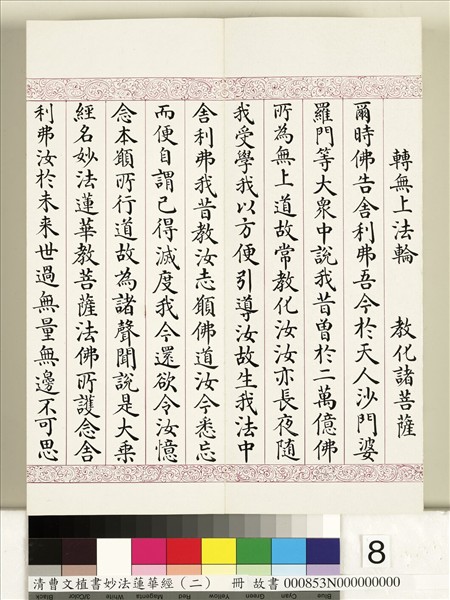 轉無上法輪 教化諸菩薩
爾時佛告舍利弗吾今於天人沙門婆
羅門等大眾中說我昔曾於二萬億佛
所為無上道故常教化汝汝亦長夜隨
我受學我以方便引導汝故生我法中
舍利弗我昔教汝志願佛道汝今悉忘
而便自謂已得滅度我今還欲令汝憶
念本願所行道故為諸聲聞說是大乘
經名妙法蓮華教菩薩法佛所護念舍
利弗汝於未來世過無量無邊不可思
8
Black
3/Color
White
Magenta
Red
Yellow
Green
Cyan
Blue
清曹文植書妙法蓮華經（二） 冊 故書 000853N000000000